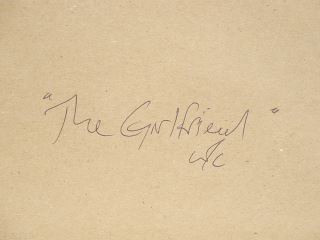 "The Girlfriend"